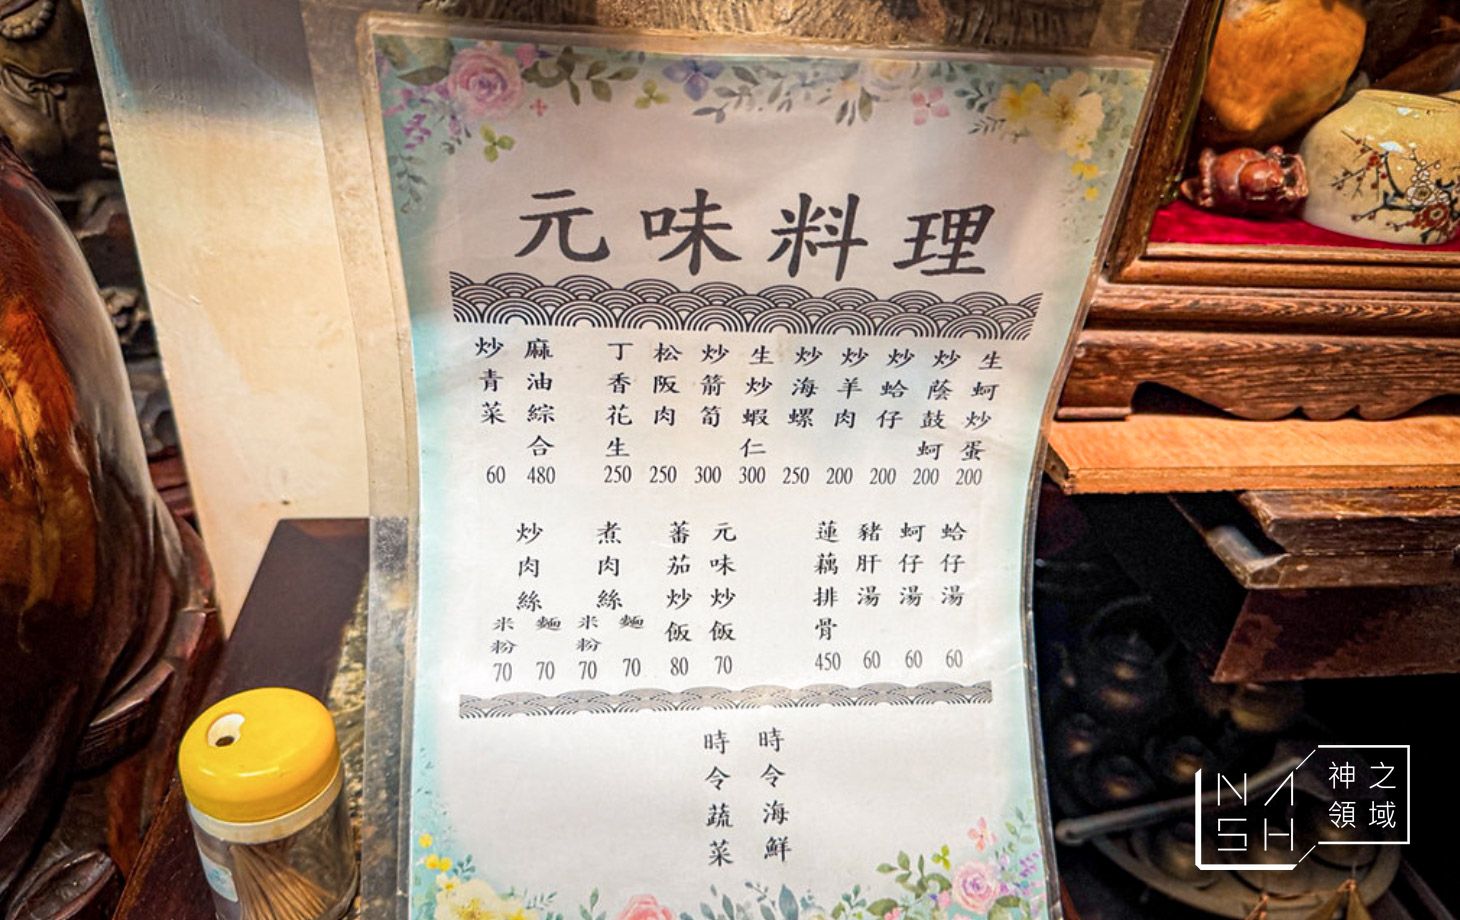 元味料理
生蚵炒蛋 200
炒蔭鼓蚵 200
炒蛤仔 200
炒羊肉 200
炒海螺 250
生炒蝦仁 300
炒箭筍 300
松阪肉 250
丁香花生 250
麻油綜合 480
炒青菜 60
蛤仔湯 60
蚵仔湯 60
豬肝湯 60
蓮藕排骨 450
元味炒飯 70
蕃茄炒飯 80
煮肉絲
麵 70
米粉 70
炒肉絲
麵 70
米粉 70
時令海鮮
時令蔬菜
NASH
神之領域